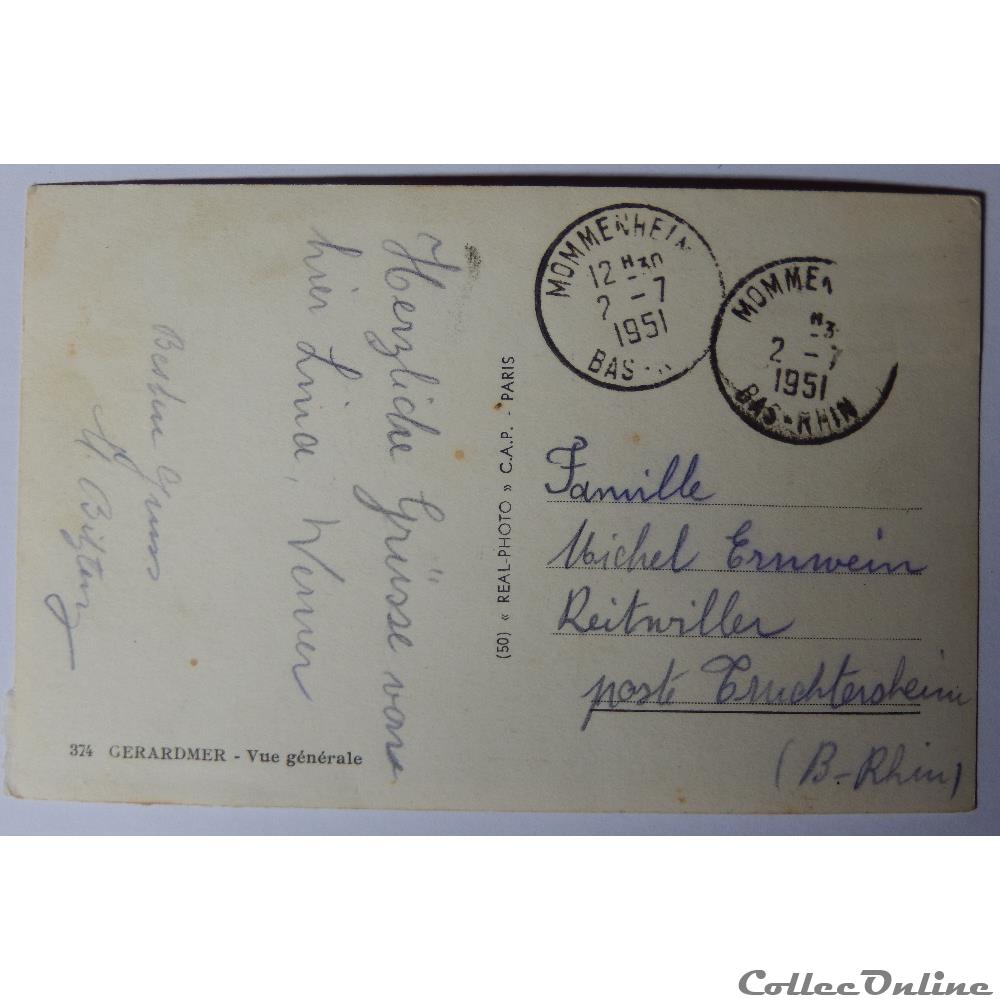 Herzliche Grüsse von
hier Lina, Werner
Besten Gruss
MOMMENHEIM
12 H30
2 - 7
1951
BAS -
MOMME
H3
2 - 7
1951
BAS-RHIN
(50) « REAL-PHOTO » C.A.P. - PARIS
Famille
Michel Ernwein
Reitwiller
poste Truchtersheim
(B-Rhin)
374 GERARDMER - Vue générale
CollecOnline